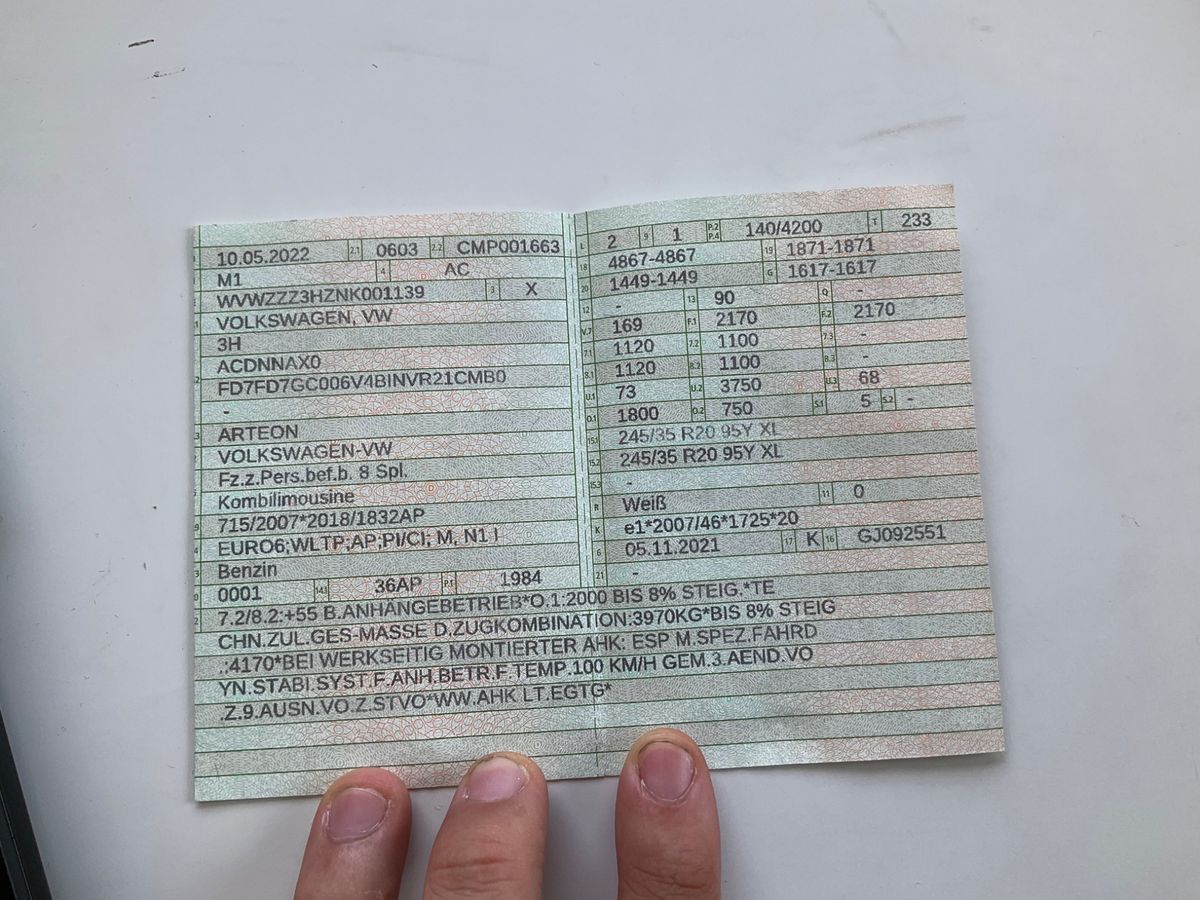 10.05.2022 2.1 0603 2.2 CMP001663
M1 4 AC
WVWZZZ3HZNK001139 3 X
VOLKSWAGEN, VW
3H
ACDNNAX0
2 FD7FD7GC006V4BINVR21CMB0
-
3 ARTEON
VOLKSWAGEN-VW
Fz.z.Pers.bef.b. 8 Spl.
Kombilimousine
9 715/2007*2018/1832AP
4 EURO6;WLTP;AP;PI/CI; M, N1 I
3 Benzin
0 0001 14.1 36AP P.1 1984
L 2 9 1 P.2 P.4 140/4200 T 233
18 4867-4867 19 1871-1871
20 1449-1449 G 1617-1617
12 - 13 90 Q -
V.7 169 F.1 2170 F.2 2170
7.1 1120 7.2 1100 7.3 -
8.1 1120 8.2 1100 8.3 -
U.1 73 U.2 3750 U.3 68
O.1 1800 O.2 750 S.1 5 S.2 -
15.1 245/35 R20 95Y XL
15.2 245/35 R20 95Y XL
15.3 -
R Weiß 11 0
K e1*2007/46*1725*20
6 05.11.2021 17 K 16 GJ092551
21 -
2 7.2/8.2:+55 B.ANHÄNGEBETRIEB*O.1:2000 BIS 8% STEIG.*TE
CHN.ZUL.GES-MASSE D.ZUGKOMBINATION:3970KG*BIS 8% STEIG
.:4170*BEI WERKSEITIG MONTIERTER AHK: ESP M.SPEZ.FAHRD
YN.STABI.SYST.F.ANH.BETR.F.TEMP.100 KM/H GEM.3.AEND.VO
.Z.9.AUSN.VO.Z.STVO*WW.AHK LT.EGTG*